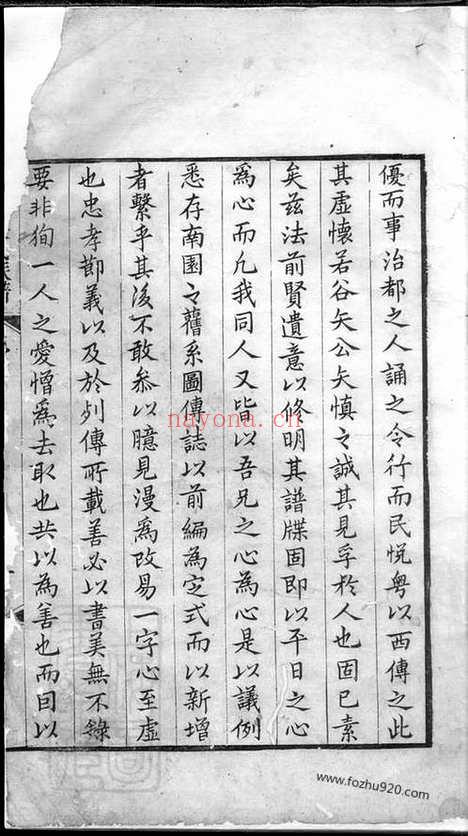 優而事治都之人誦之令行而民悅粵以西傳之此
其虛懷若谷矢公矢慎之誠其見孚於人也固已素
矣茲法前賢遺意以修明其譜牒固即以平日之心
為心而凢我同人又皆以吾兄之心為心是以議例
悉存南園之舊系圖傳誌以前編為定式而以新增
者繫乎其後不敢參以臆見漫為改易一字心至虛
也忠孝節義以及於列傳所載善必以書美無不錄
要非狥一人之愛憎為去取也共以為善也而因以
nayona.cn
www.fozhu920.com